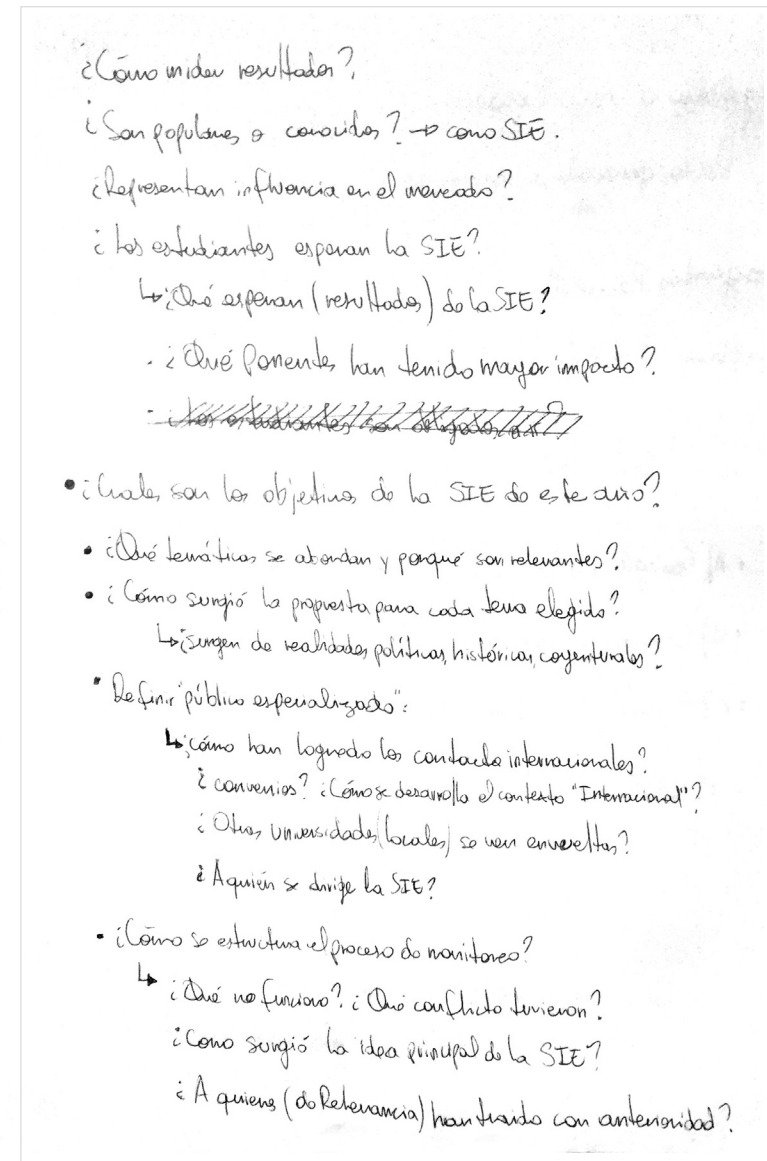 ¿Cómo miden resultados?
¿Son populares o conocidos? → como SIE.
¿Representan influencia en el mercado?
¿Los estudiantes esperan la SIE?
↳ ¿Qué esperan (resultados) de la SIE?
- ¿Qué Ponentes han tenido mayor impacto?
- ¿Los estudiantes son
• ¿Cuales son los objetivos de la SIE de este año?
• ¿Qué temáticas se abordan y porqué son relevantes?
• ¿Cómo surgió la propuesta para cada tema elegido?
↳ ¿surgen de realidades políticas, históricas, coyenturales?
• Definir "público especializado":
↳ ¿cómo han logrado los contacto internacionales?
¿convenios? ¿Cómo se desarrolla el contexto "Internacional"?
¿Otras universidades (locales) se ven envueltas?
¿A quién se dirige la SIE?
• ¿Cómo se estructura el proceso de monitoreo?
↳ ¿Qué no funciono? ¿Qué conflicto tuvieron?
¿Como surgió la idea principal de la SIE?
¿A quienes (de Relevancia) han traido con anterioridad?